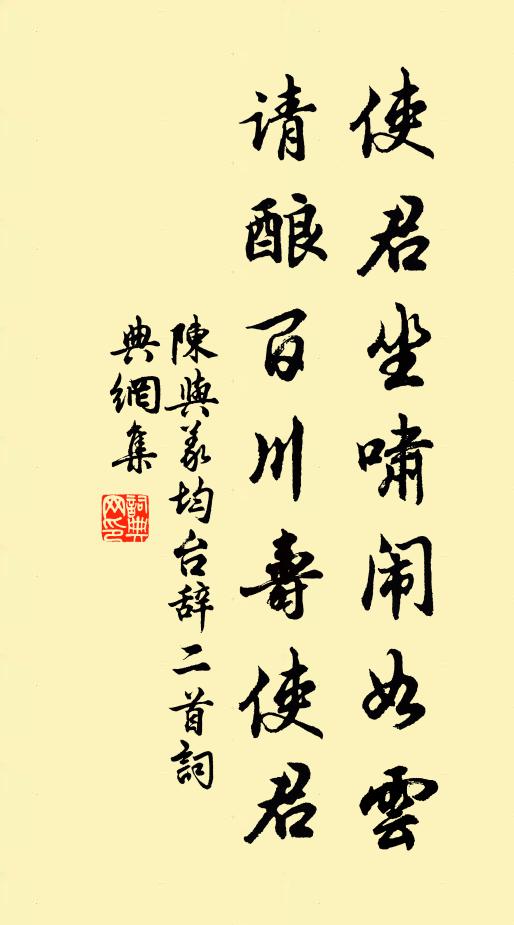 使君坐啸闹如雲
请酿百川壽使君
陳與義均台辞二首詞
典網集
詞典网印